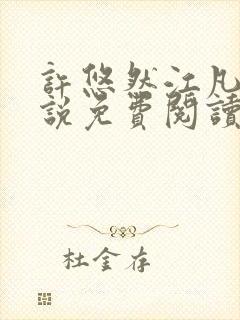 許悠然江凡
說免費閱讀
杜金存